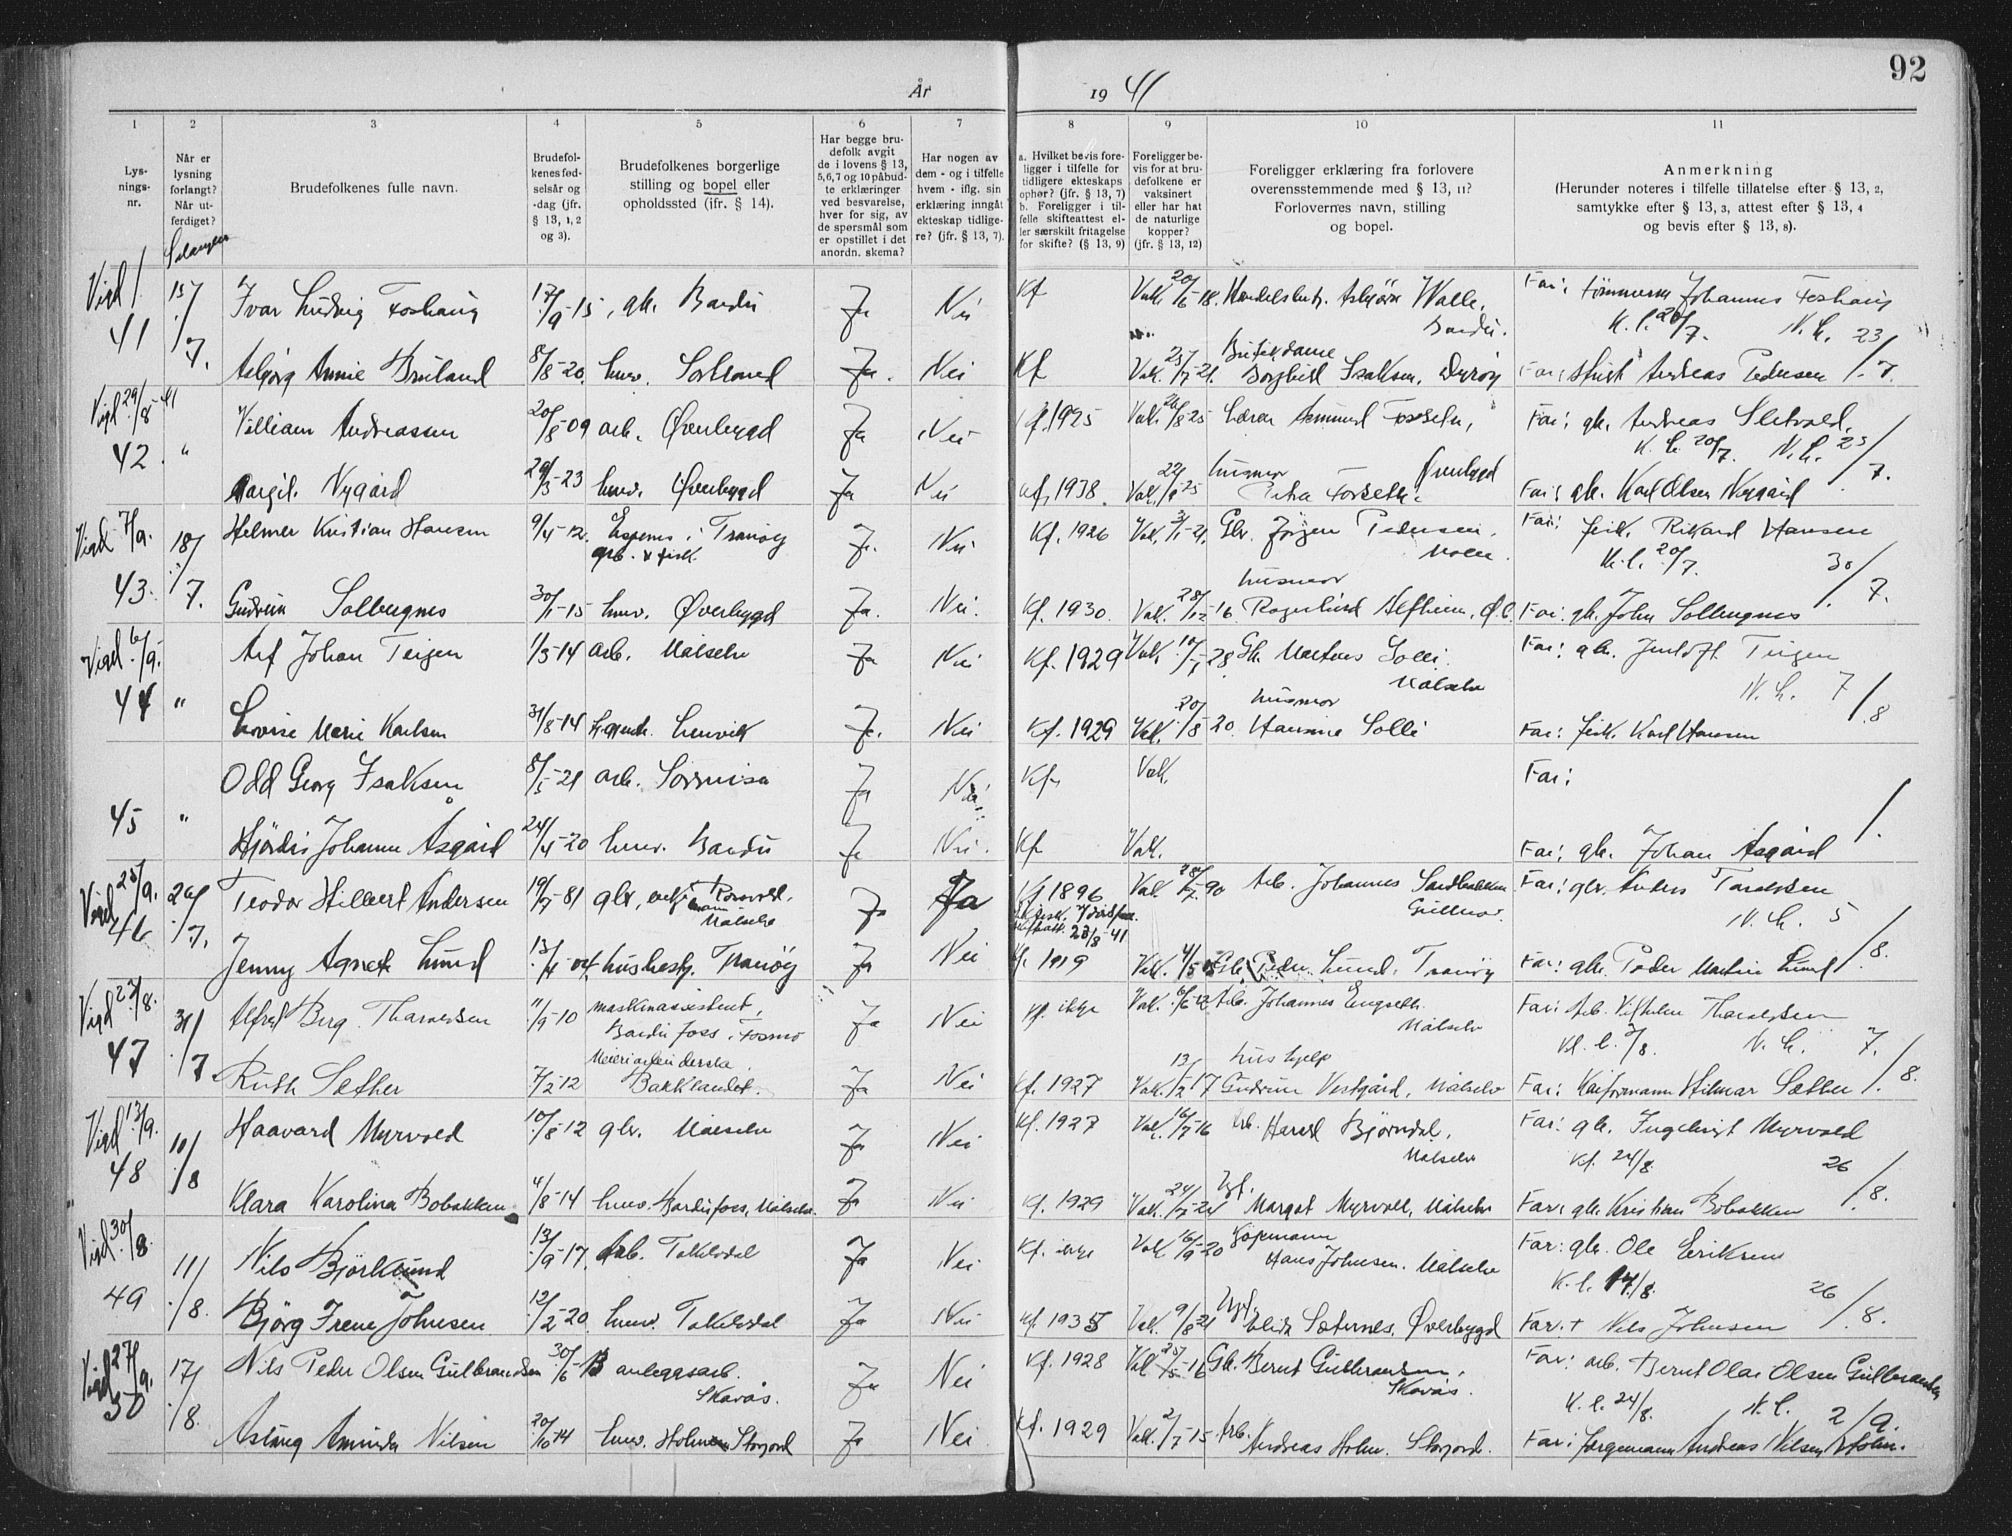 92
År 1941
1 2 3 4 5 6 7 8 9 10 11
Lysningsnr.
Når er lysning forlangt? Når utferdiget?
Brudefolkenes fulle navn.
Brudefolkenes fødselsår og -dag (jfr. § 13, 1, 2 og 3).
Brudefolkenes borgerlige stilling og bopel eller opholdssted (ifr. § 14).
Har begge brudefolk avgit de i lovens § 13, 5, 6, 7 og 10 påbudte erklæringer ved besvarelse, hver for sig, av de spørsmål som er opstillet i det anordn. skema?
Har nogen av dem - og i tilfelle hvem - iflg. sin erklæring inngåt ekteskap tidligere? (jfr. § 13, 7).
a. Hvilket bevis foreligger i tilfelle for tidligere ekteskaps ophør? (jfr. § 13, 7)
b. Foreligger i tilfelle skifteattest eller særskilt fritagelse for skifte? (§ 13, 9)
Foreligger bevis for at brudefolkene er vaksinert eller har hat de naturlige kopper? (jfr. § 13, 12)
Foreligger erklæring fra forlovere overensstemmende med § 13, 11? Forlovernes navn, stilling og bopel.
Anmerkning
(Herunder noteres i tilfelle tillatelse efter § 13, 2, samtykke efter § 13, 3, attest efter § 13, 4 og bevis efter § 13, 8).
Salangen
Vigd
41 15/7. Ivar Ludvig Foshaug 17/9-15, gk. Bardu Ja Nei Kf Vak. 20/6-18. Asbjørn Walle, Bardu. Far: Tømmerm Johannes Foshaug
K.l. 20/7. N.L. 23/7.
Asbjørg Annie Bruland 8/8-20. husv. Ja. Nei Kf Vak. 23/7-21. Butikdame Borghild Isaksen, Dyrøy Far: Andreas Pedersen
Vigd 29/8-41
42 " Villiam Andreassen 20/8-09 arb. Øverbygd Ja Nei Kf. 1925 Vak. 26/8 25 Lærer Amund Forseth, Øverbygd Far: gk. Andreas Sletvold
K.l. 20/7. N.L. 23/7.
Nygård 29/3-23 husv. Øverbygd Ja Nei Kf. 1938. Vak. 22/9-25 husmor Petra Forseth Far: gk. Karl Olsen Nygård
Vigd 7/9.
43. 18/7. Helmer Kristian Hansen 9/4-12. Espenes i Tranøy arb. & fisk. Ja. Nei Kf. 1926 Vak. 3/1-21. Gbr. Jørgen Pedersen. Far: fisk. Rikard Hansen
K.l. 20/7. 30/7.
Gudrun Solbergnes 30/1-15 husv. Øverbygd Ja. Nei. Kf. 1930. Vak. 28/12-16 husmor Ragnhild Alfheim, Ø.b. Far: gk. John Solbergnes
Vigd. 6/9.
44 " Arf Johan Teigen 1/3-14 arb. Målselv Ja Nei Kf. 1929 Vak. 10/7-28 Gk. Martens Solli. Målselv Far: gk. Jentoft Teigen
N.L. 7/8
Lovise Marie Karlsen 31/8-14 Lenvik Ja. Nei Kf. 1929 Vak. 20/8-20 husmor Hansine Solli Far: fisk. Karl Hansen
45 " Odd Georg Isaksen 8/5-21 arb. Sørreisa Ja Nei Kf. Vak. Far:
Hjørdis Johanne Åsgård 24/4-20 husv. Bardu Ja Nei. Kf Vak. Far: gk. Johan Åsgård
Vigd 25/9.
46 26/7. Teodor Hilbert Andersen 19/7-81 gbr, Målselv Ja Ja Kf 1896 23/8-41 Vak 90 Arb. Johannes Sandbakken Far: gbr. Anders Taraldsen
N.L. 5/8.
Jenny Agnete Lund 13/4-04 husbest. Tranøy Ja Nei Kf 1919 Vak. 4/5 Gk. Peder Lund, Tranøy Far: gk. Peder Martin Lund
Vigd 23/8.
47 31/7. Alfred Berg Tharaldsen 11/9-10 maskinassistent, Bardufoss, Fosmo Ja Nei Kf. ikke Vak. 6/6-12 Arb. Johannes Engseth. Målselv Far: Arb. Vilhelm Tharaldsen
Kl. l. 3/8. N.L. 7/8.
Ruth Sether 7/2-12 Meieriarbeiderske. Bakklandet. Ja Nei Kf. 1927 Vak. 13/2-17 hushjelp Gudrun Vestgård, Målselv Far: Hilmar Sæther
Vigd 13/9.
48 10/8 Haavard Myrvold 10/8-12 gbr. Målselv Ja Nei Kf. 1927 Vak. 16/7-16 Arb. Harald Bjørndal. Målselv Far: gk. Ingebrigt Myrvold
Kl. 24/8. 26/8.
Klara Karolina Bobakken 4/8-14 husv. Bardufoss, Målselv. Ja Nei Kf. 1929 Vak. 24/7-24 Margot Myrvoll, Målselv Far: gk. Kristian Bobakken
Vigd. 30/8.
49 11/8. Nils Björklund 13/9-17. Arb. Takelvdal Ja Nei Kf. ikke Vak. 16/9-20 Hans Johnsen. Målselv Far: gk. Ole Eriksen
K.l. 17/8. 26/8.
Bjørg Irene Johnsen 12/2-20. husv. Takelvdal Ja Nei Kf. 1935 Vak. 9/8 21 Sæternes, Øverbygd Far: + Nils Johnsen
Vigd 27/9.
50 17/8. Nils Peder Olsen Gulbrandsen 30/6-13 anleggsarb. Skavås. Ja Nei Kf. 1928 Vak 25/5-16 Gk. Bernt Gulbransen, Skavås. Far: arb. Bernt Olai Olsen Gulbrandsen
K.l. 24/8. N.L. 2/9.
Aslaug Aminda Nilsen 20/10-14 husv. Holmen Storjord Ja Nei Kf. 1929 Vak. 2/7-15 Arb. Andreas Holm. Storjord. Far: Andreas Nilsen Holm.